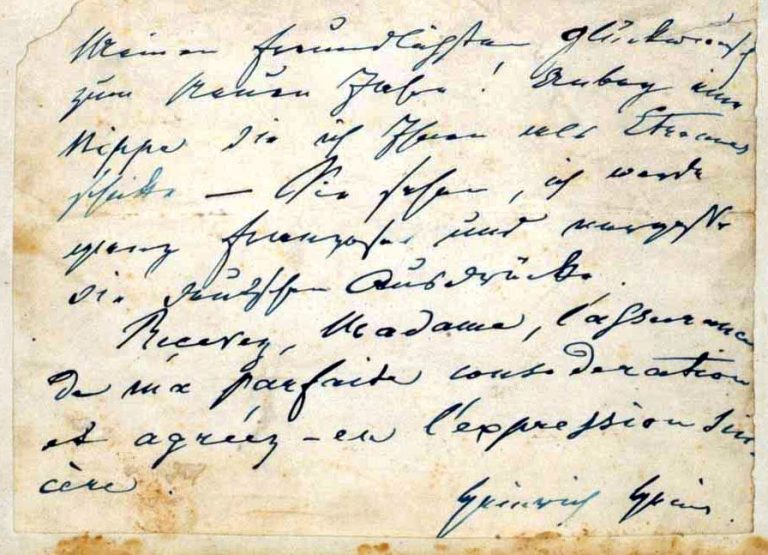 Meinen freundlichsten Glückwunsch
zum neuen Jahr! Anbey eine
Nippe die ich Ihnen als Etrennes
schicke — Sie sehen, ich werde
ganz Franzose und vergesse
die deutschen Ausdrücke.
Recevez, Madame, l'assurance
de ma parfaite consideration
et agréez-en l'expression sin-
cère.
Heinrich Heine